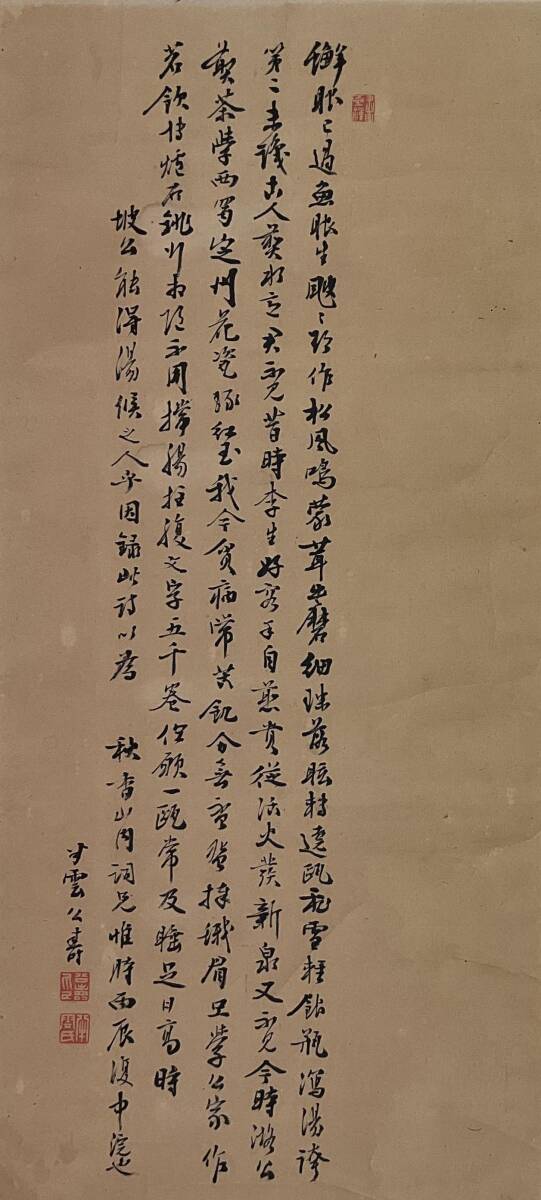 蟹眼已過魚眼生颼〻欲作松風鳴蒙茸出磨細珠落眩轉遶甌飛雪輕銀瓶瀉湯誇
第二未識古人煎水意君不見昔時李生好客手自煎貴從活火發新泉又不見今時潞公
煎茶學西蜀定州花瓷琢紅玉我今貧病常苦飢分無玉盌捧蛾眉且學公家作
茗飲塼爐石銚行相隨不用撐腸拄腹文字五千卷但願一甌常及睡足日高時
坡公能得湯候之人乎因錄此詩以為 秋香詞兄惟時丙辰夏中浣也
雲公壽